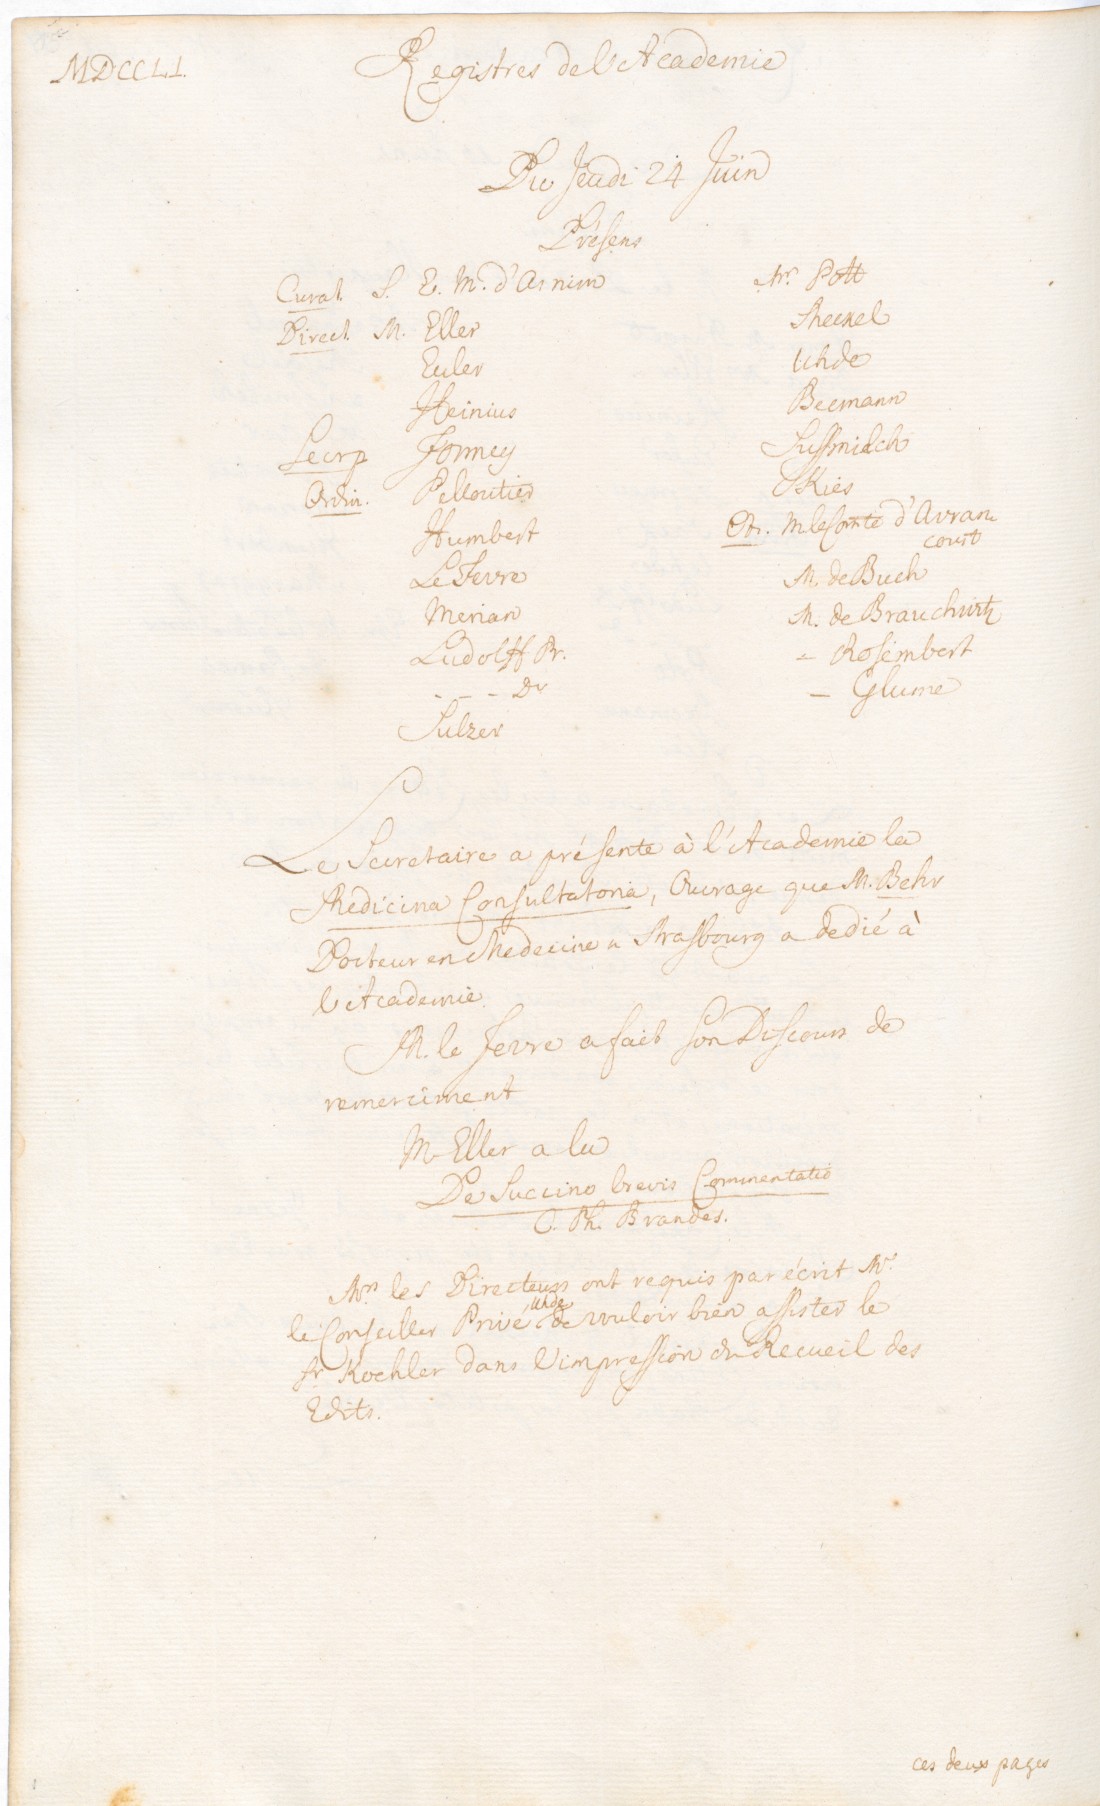 MDCCLI.
Registres de l'Academie
Du Jeudi 24 Juin
Présens
Curat. S. E. Mr. d'Arnim
Direct. M. Eller
Euler
Heinius
Secrp Formey
Ordin. Pelloutier
Humbert
Le Fevre
Merian
Ludolff Pr.
- - - Dr
Sulzer
Mr. Pott
Meckel
Uhde
Becmann
Sussmilch
Kies
Etr. M. le Comte d'Avran
court
M. de Buch
M. de Brauchwitz
- Rosembert
- Glume
Le Secretaire a présenté à l'Academie la
Medicina Consultatoria, Ouvrage que M. Behr
Docteur en Medecine a Strasbourg a dedié à
l'Academie.
M. le Fevre a fait son Discours de
remerciment
M. Eller a lu
De Succino brevis Commentatio
C. Ph. Brandes.
Mrs les Directeurs ont requis par écrit Mr.
le Conseiller Privé Uhde de vouloir bien assister le
Sr Koehler dans l'impression du Recueil des
Edits.
ces deux pages